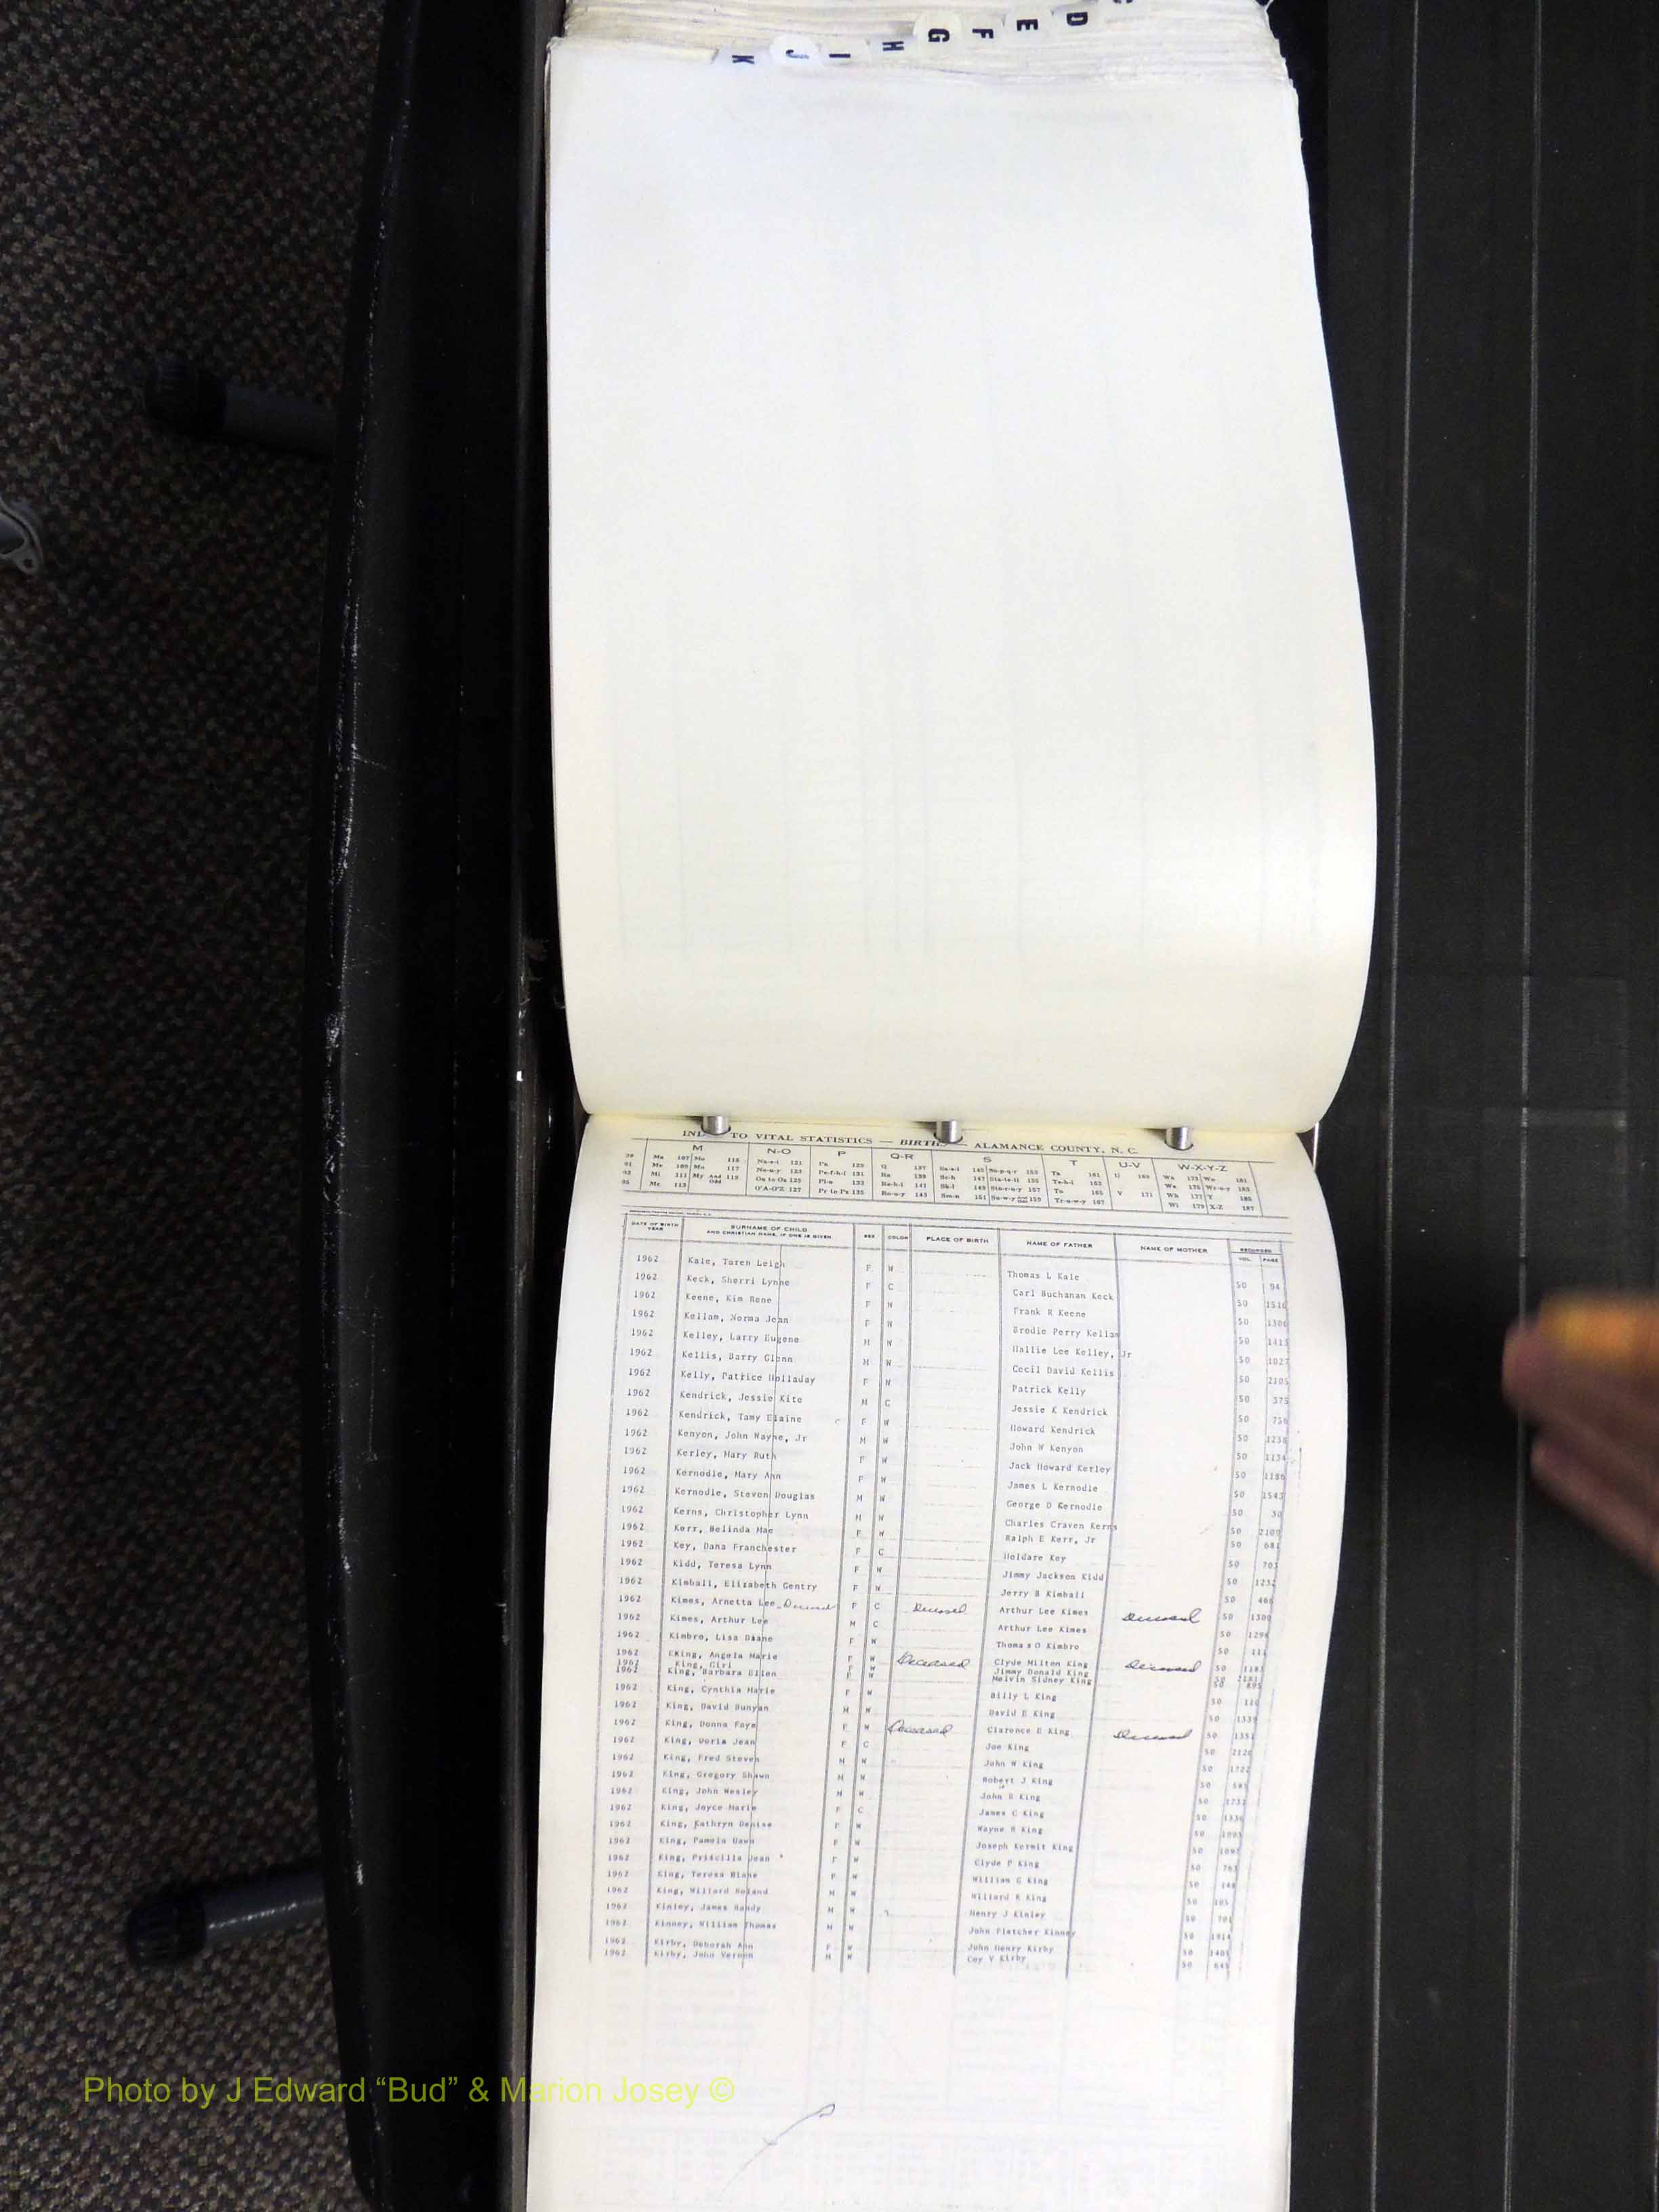 D
E
F
G
H
I
J
K
TO VITAL STATISTICS — BIRTHS — ALAMANCE COUNTY, N. C.
M N-O P Q-R S T U-V W-X-Y-Z
DATE OF BIRTH YEAR SURNAME OF CHILD AND CHRISTIAN NAME, IF ONE IS GIVEN SEX COLOR PLACE OF BIRTH NAME OF FATHER NAME OF MOTHER RECORDED VOL. PAGE
1962 Kale, Taren Leigh F W Thomas L Kale 50 94
1962 Keck, Sherri Lynne F C Carl Buchanan Keck 50 1516
1962 Keene, Kim Rene F W Frank R Keene 50 1306
1962 Kellam, Norma Jean F W Brodie Perry Kellam 50 1415
1962 Kelley, Larry Eugene M W Hallie Lee Kelley, Jr 50 1027
1962 Kellis, Barry Glenn M W Cecil David Kellis 50 2105
1962 Kelly, Patrice Holladay F W Patrick Kelly 50 375
1962 Kendrick, Jessie Kite M C Jessie K Kendrick 50 756
1962 Kendrick, Tamy Elaine F W Howard Kendrick 50 1238
1962 Kenyon, John Wayne, Jr M W John W Kenyon 50 1154
1962 Kerley, Mary Ruth F W Jack Howard Kerley 50 1186
1962 Kernodle, Mary Ann F W James L Kernodle 50 1543
1962 Kernodle, Steven Douglas M W George D Kernodle 50 30
1962 Kerns, Christopher Lynn M W Charles Craven Kerns 50 2109
1962 Kerr, Belinda Mae F W Ralph E Kerr, Jr 50 681
1962 Key, Dana Franchester F C Holdare Key 50 703
1962 Kidd, Teresa Lynn F W Jimmy Jackson Kidd 50 1232
1962 Kimball, Elizabeth Gentry F W Jerry B Kimball 50 466
1962 Kimes, Arnetta Lee Deceased F C Deceased Arthur Lee Kimes Deceased 50 1300
1962 Kimes, Arthur Lee M C Arthur Lee Kimes 50 1294
1962 Kimbro, Lisa Diane F W Thomas O Kimbro 50 111
1962 King, Angela Marie F W Deceased Clyde Milton King Deceased 50 1183
1962 King, Girl F W Jimmy Donald King 50
1962 King, Barbara Ellen F W Melvin Sidney King 50 895
1962 King, Cynthia Marie F W Billy L King 50 110
1962 King, David Bunyan M W David E King 50 1339
1962 King, Donna Faye F W Deceased Clarence E King Deceased 50 1351
1962 King, Doris Jean F C Joe King 50 2120
1962 King, Fred Steven M W John W King 50 1722
1962 King, Gregory Shawn M W Robert J King 50 585
1962 King, John Wesley M W John B King 50 1731
1962 King, Joyce Marie F C James C King 50 1336
1962 King, Kathryn Denise F W Wayne H King 50
1962 King, Pamela Dawn F W Joseph Kermit King 50
1962 King, Priscilla Jean F W Clyde P King 50 763
1962 King, Teresa Blane F W William G King 50 148
1962 King, Willard Roland M W Willard R King 50 105
1962 Kinley, James Randy M W Henry J Kinley 50 701
1962 Kinney, William Thomas M W John Fletcher Kinney 50 1914
1962 Kirby, Deborah Ann F W John Henry Kirby 50 1405
1962 Kirby, John Vernon M W Coy V Kirby 50 645
Photo by J Edward “Bud” & Marion Josey ©